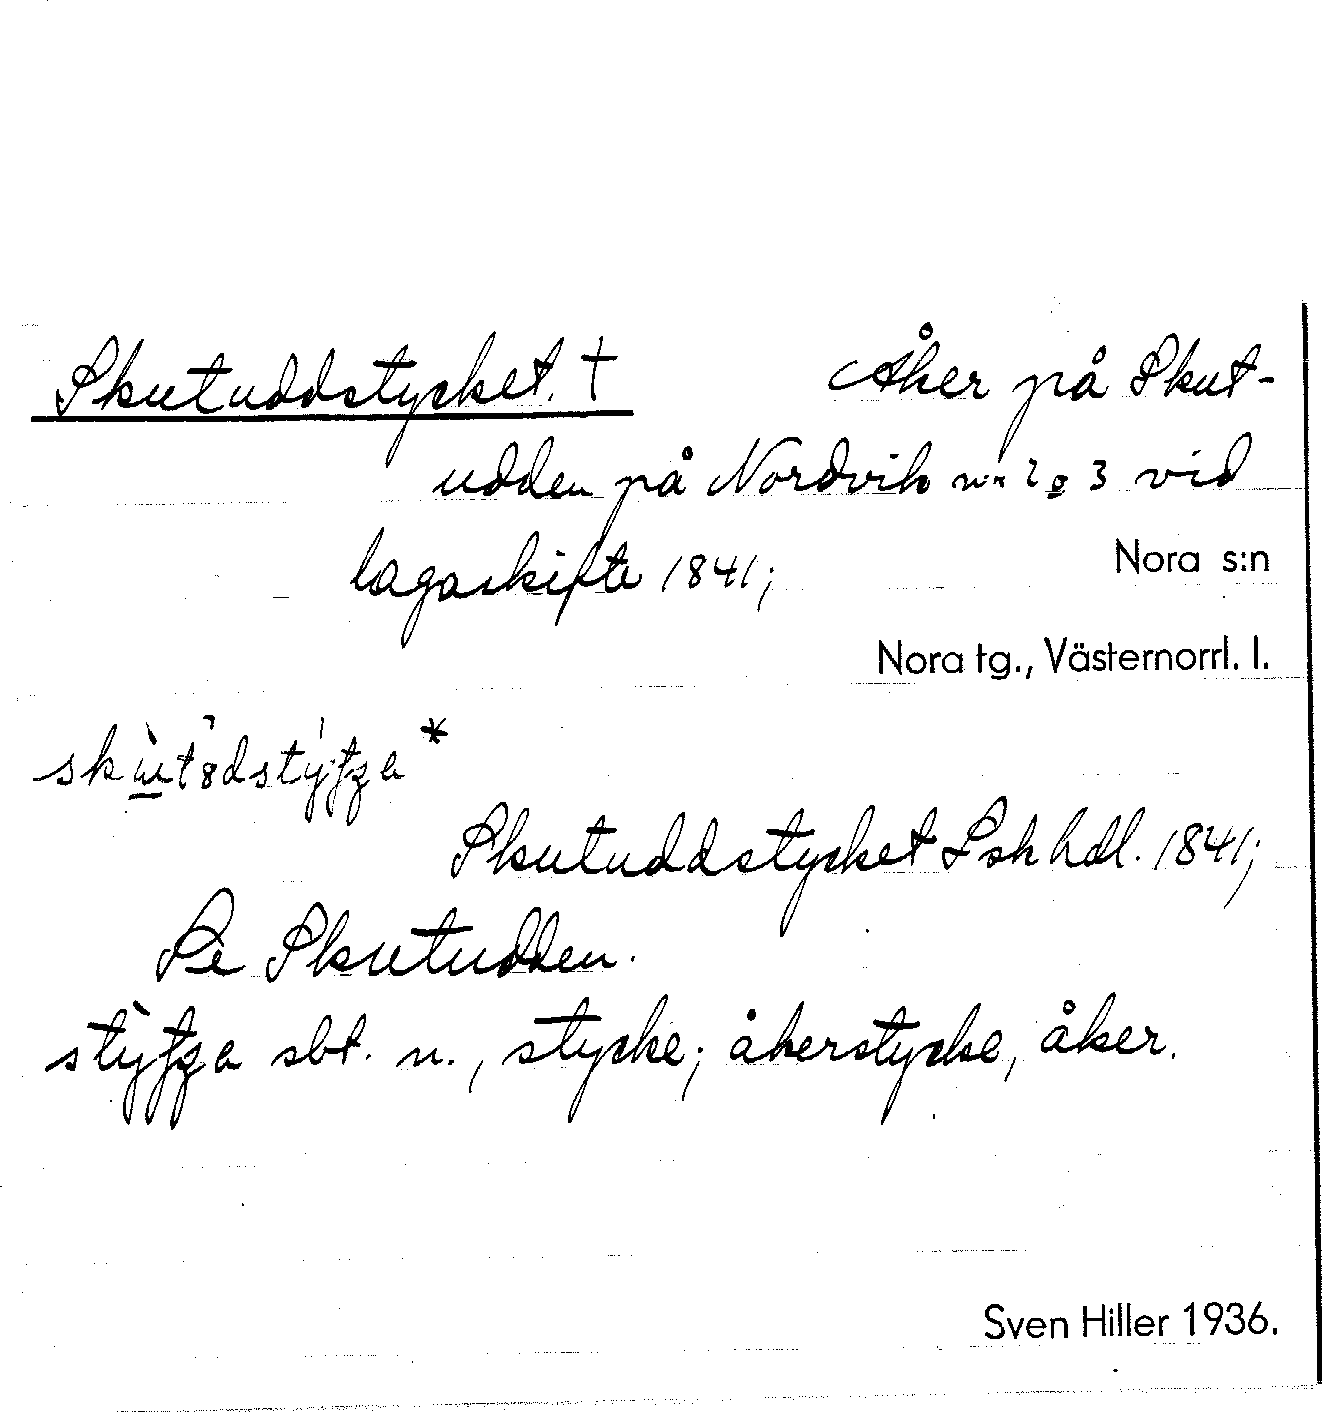 Skutuddstycket. † Åker på Skut-
udden på Nordvik nr 2 o 3 vid
lagaskifte 1841;
Nora s:n
Nora tg., Västernorrl. l.
Skutuddstycket Lsk hdl. 1841;
Se Skutudden.
sbt. n., stycke; åkerstycke, åker.
Sven Hiller 1936.